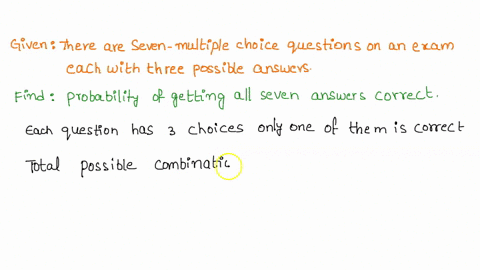 Given: There are Seven-multiple choice questions on an exam
each with three possible answers.
Find: probability of getting all seven answers correct.
Each question has 3 choices only one of them is correct
Total possible combinatic